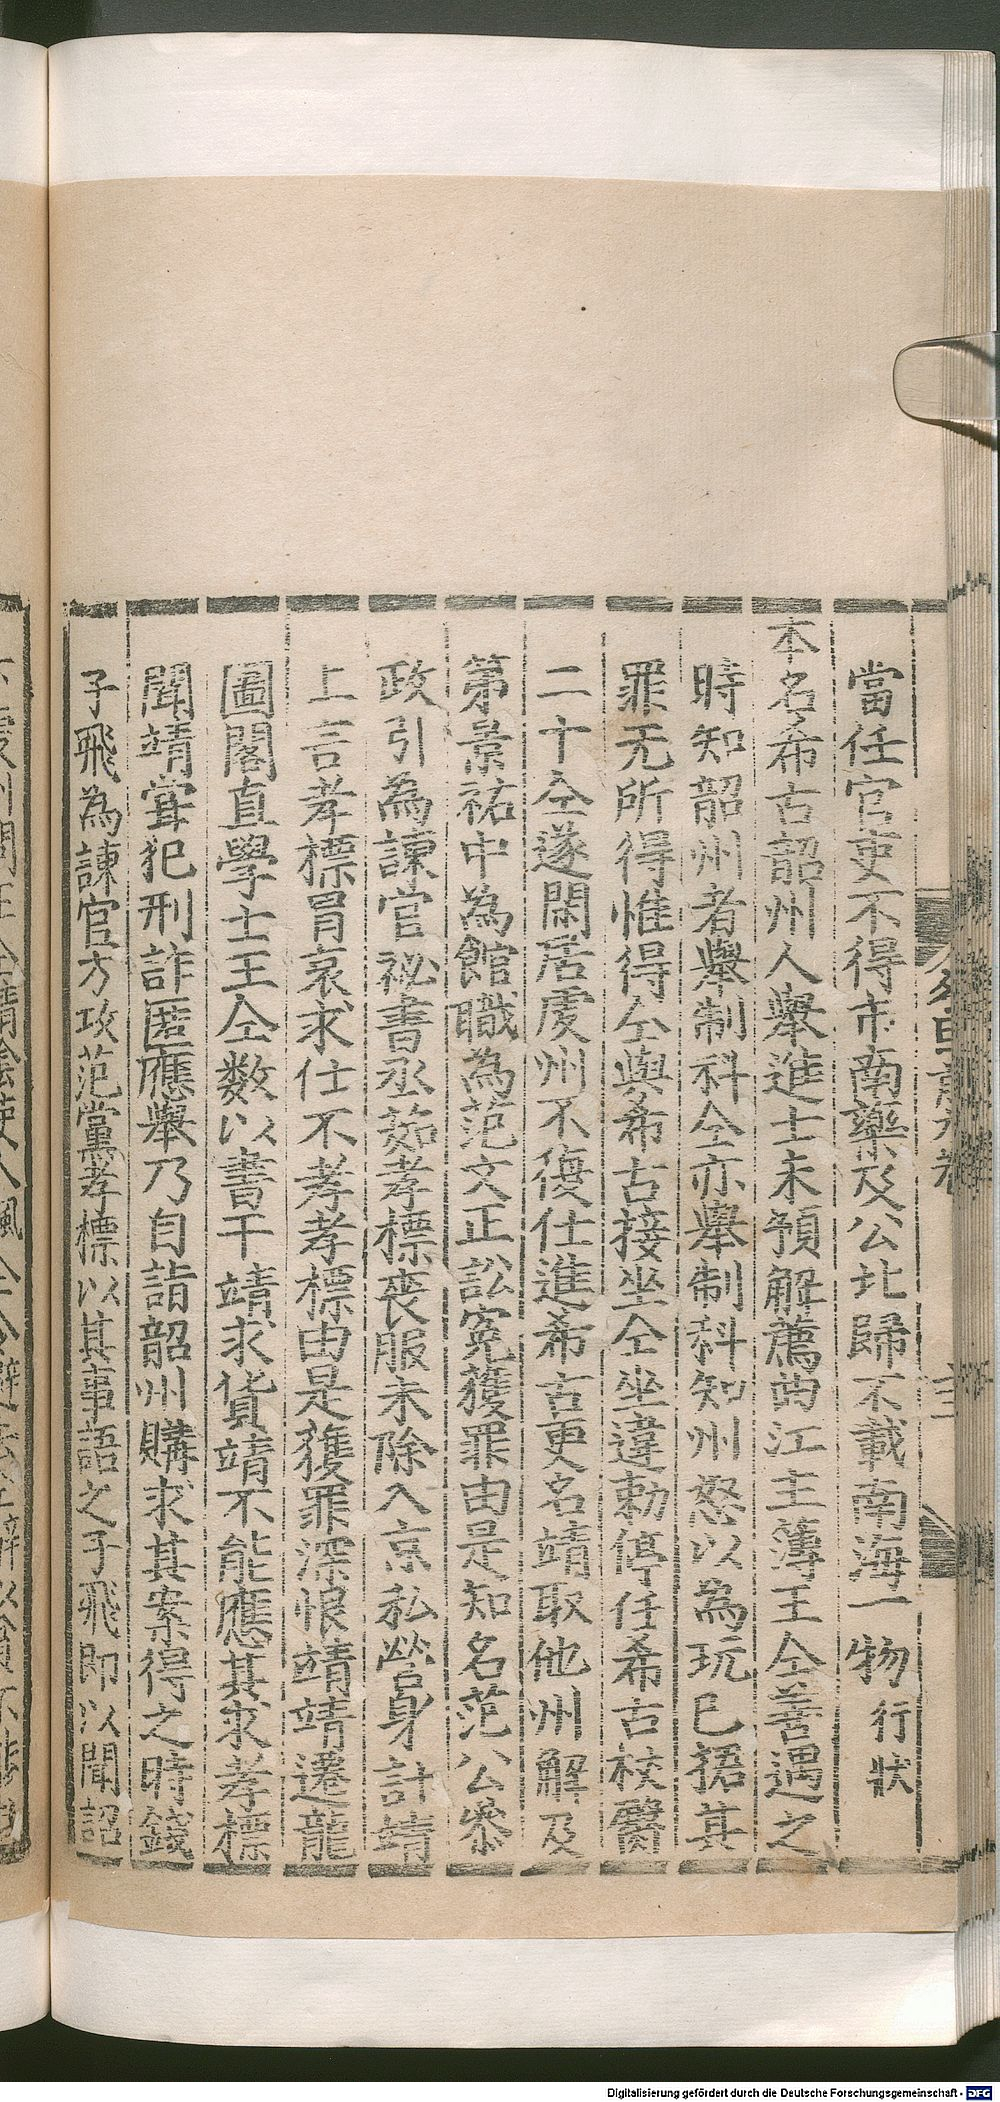 當任官吏不得市南藥及公北歸不載南海一物行狀
本名希古韶州人舉進士未預解薦曲江主薄王仝善遇之
時知韶州者舉制科仝亦舉制科知州怒以為玩已捃其
罪无所得惟得仝與希古接坐仝坐違勅停任希古杖臀
二十仝遂閑居虔州不復仕進希古更名靖取他州解及
第景祐中為館職為范文正訟寃獲罪由是知名范公參
政引為諫官祕書丞茹孝標喪服未除入京私營身計靖
上言孝標冒哀求仕不孝孝標由是獲罪深恨靖靖遷龍
圖閣直學士王仝数以書干靖求貨靖不能應其求孝標
聞靖甞犯刑詐匿應舉乃自詣韶州購求其案得之時錢
子飛為諫官方攻范黨孝標以其事語之子飛即以聞詔
Digitalisierung gefördert durch die Deutsche Forschungsgemeinschaft - DFG